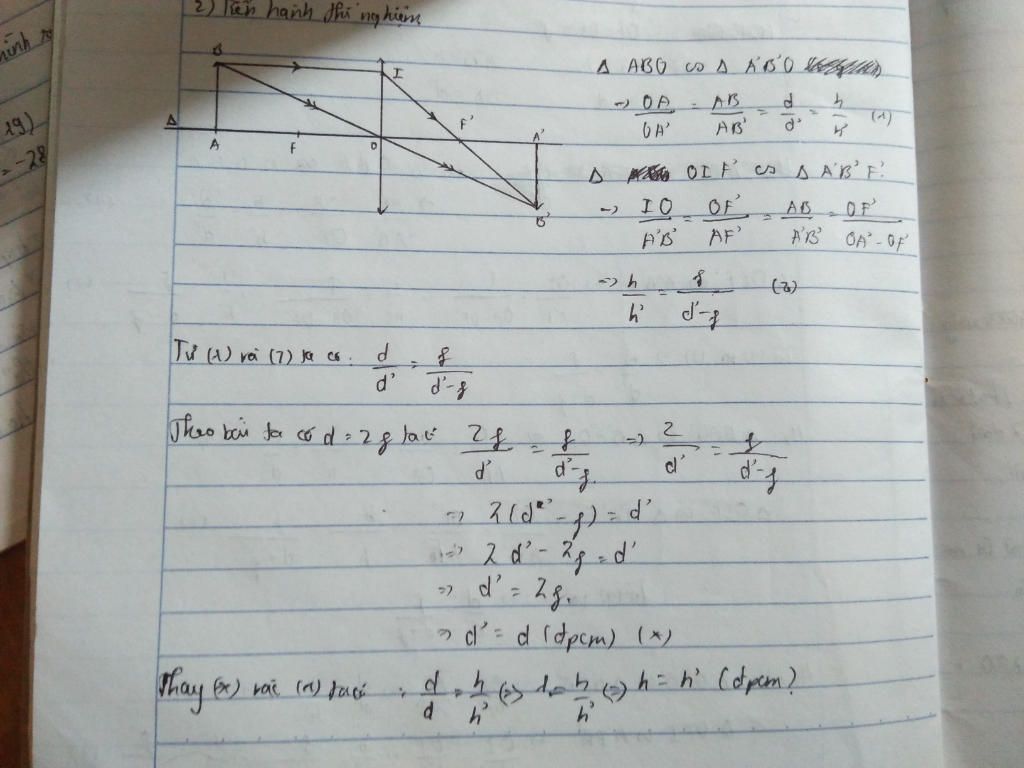 2) Tiến hành thí nghiệm
B
I
Δ
A
F
O
F'
A'
B'
Δ ABO ∽ Δ A'B'O
→ OA/OA' = AB/AB' = d/d' = h/h' (1)
Δ OIF' ∽ Δ A'B'F'.
→ IO/A'B' = OF'/AF' = AB/A'B' = OF'/OA'-OF'
=> h/h' = f/d'-f (2)
Từ (1) và (2) ta có: d/d' = f/d'-f
Theo bài ta có d = 2f ta có 2f/d' = f/d'-f => 2/d' = f/d'-f
=> 2(d' - f) = d'
=> 2d' - 2f = d'
=> d' = 2f.
=> d' = d (dpcm) (*)
Thay (*) vào (1) ta có: d/d = h/h' (=) 1 = h/h' (=) h = h' (dpcm)
19)
= -28